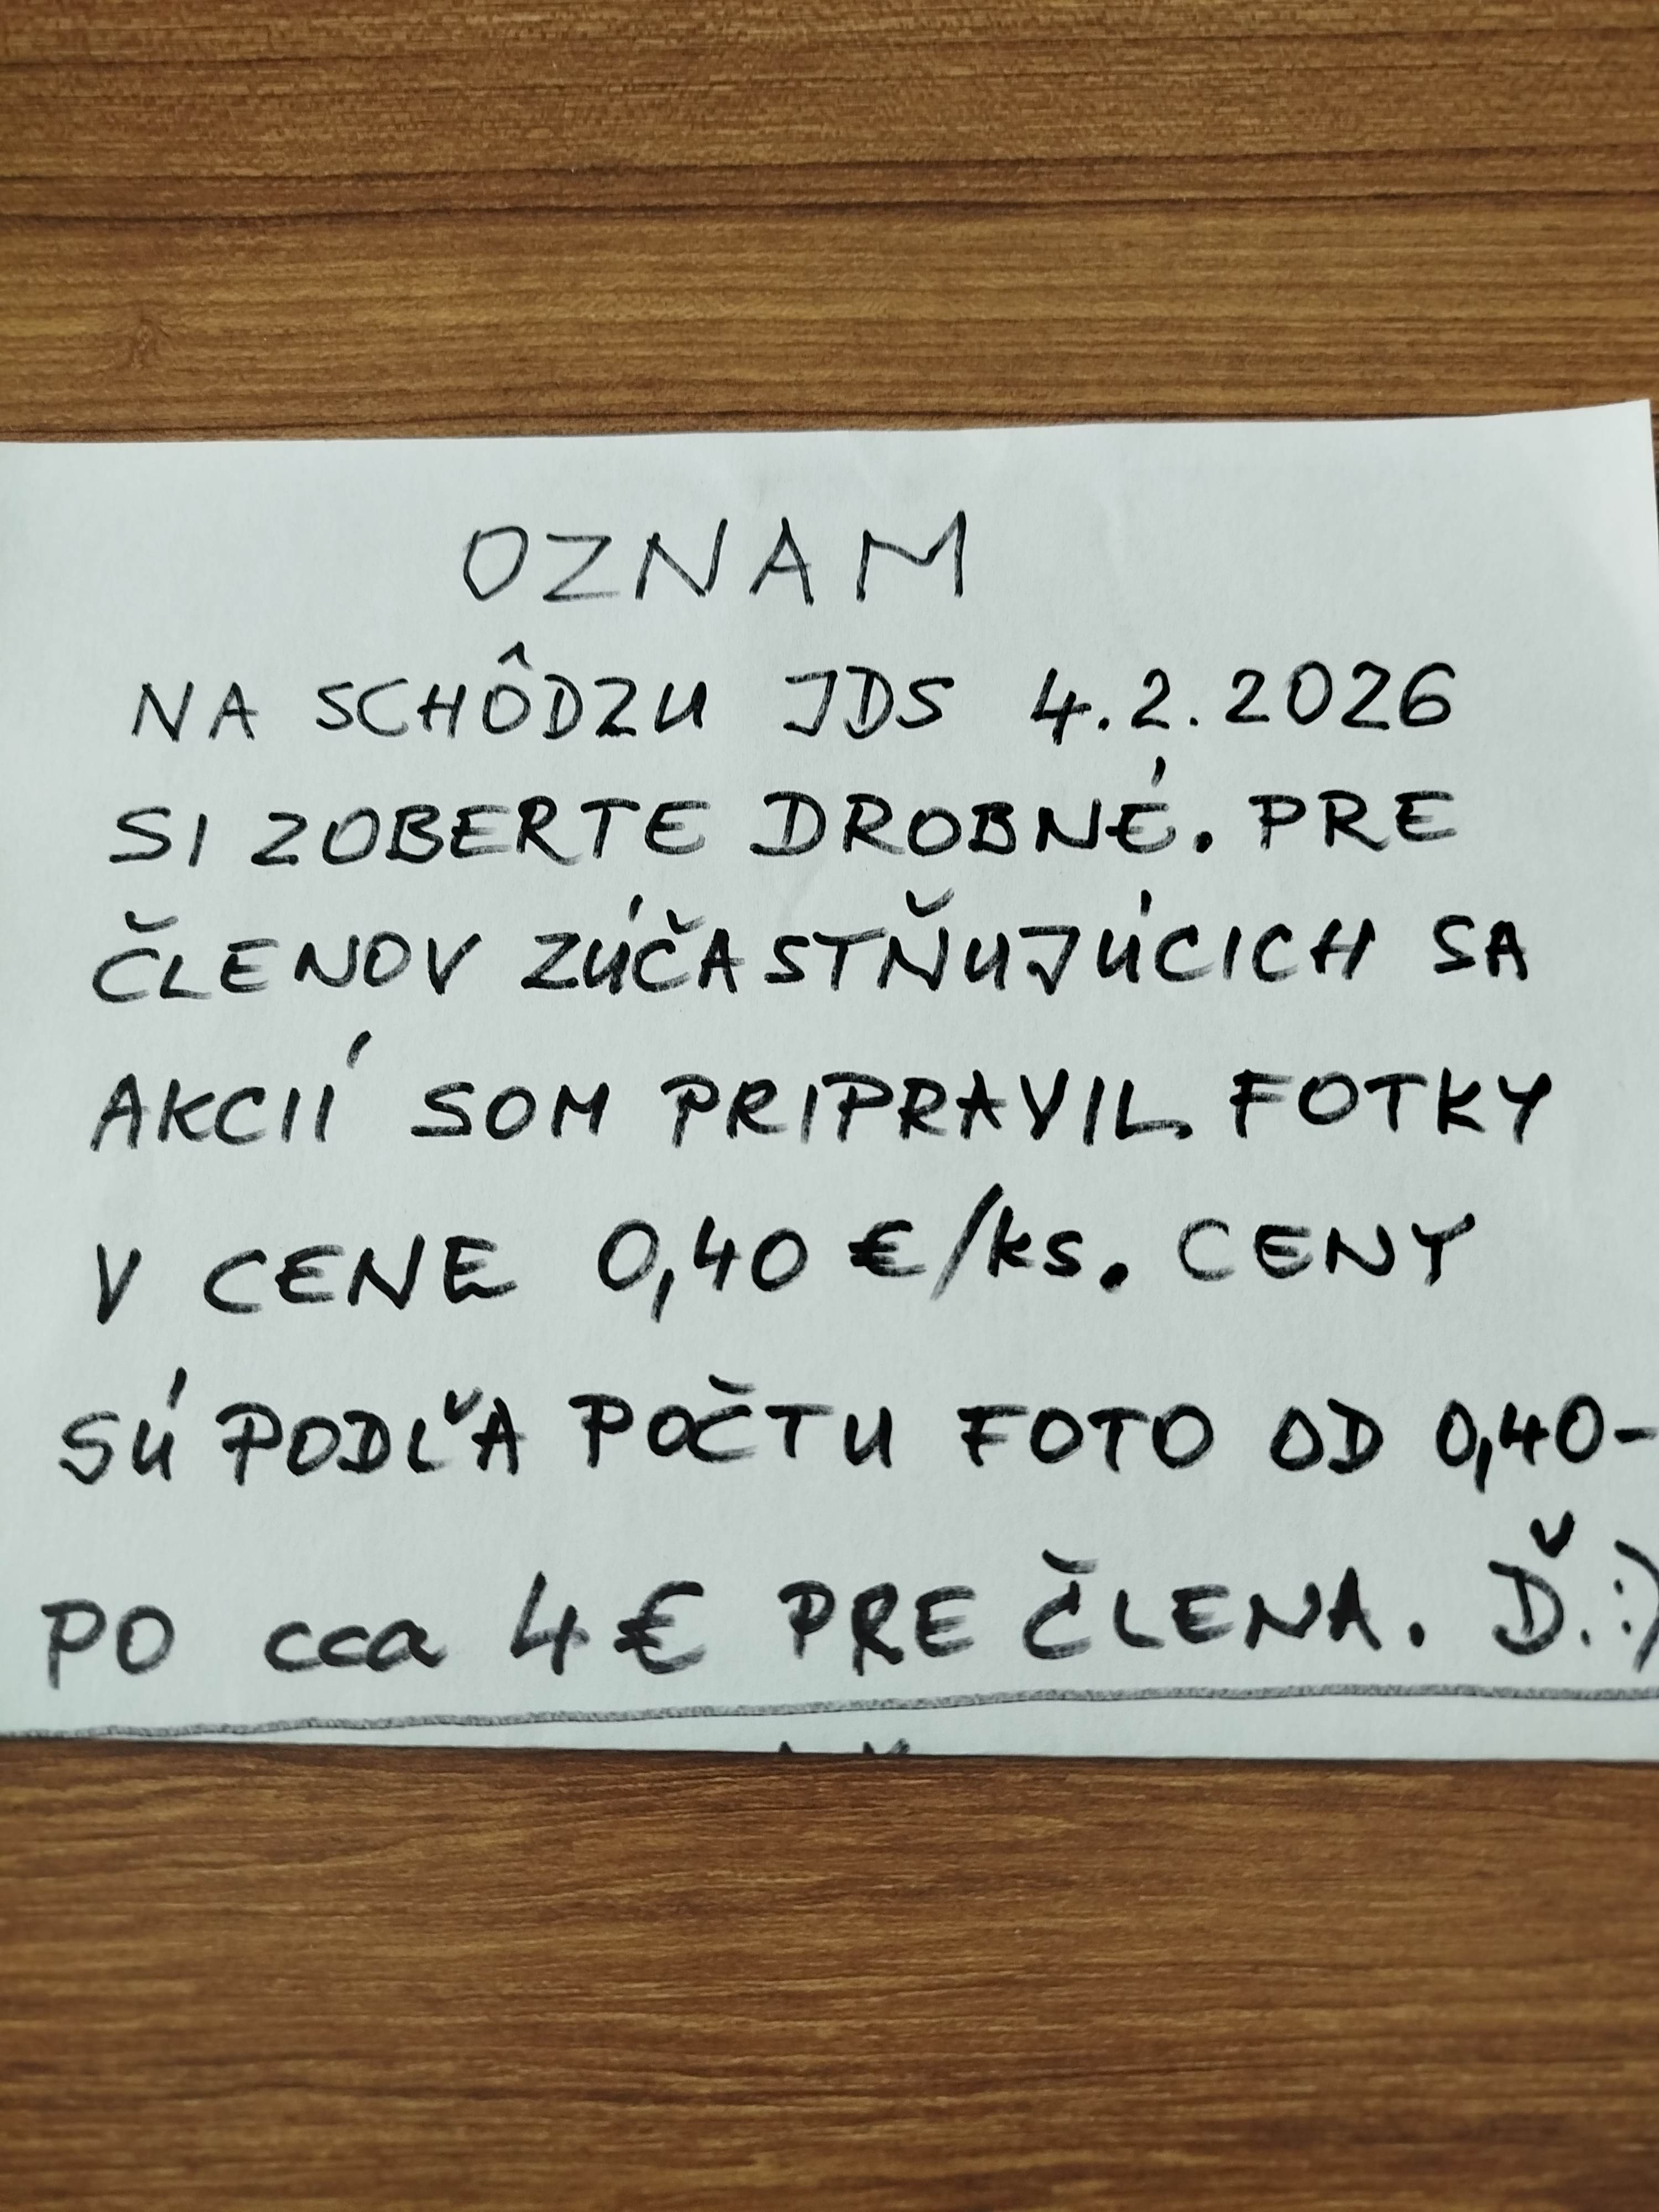 OZNAM
NA SCHÔDZU JDS 4.2.2026
SI ZOBERTE DROBNÉ. PRE
ČLENOV ZÚČASTŇUJÚCICH SA
AKCIÍ SOM PRIPRAVIL FOTKY
V CENE 0,40 €/ks. CENY
SÚ PODĽA POČTU FOTO OD 0,40-
PO cca 4€ PRE ČLENA. Ď. :)